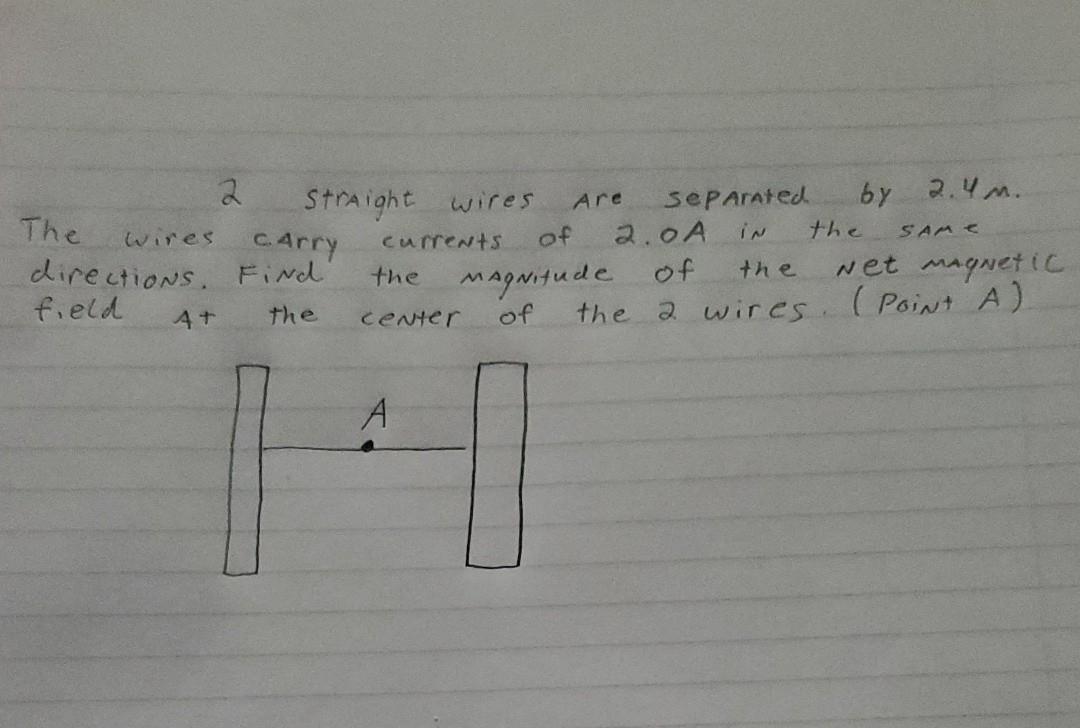 2 straight wires are separated by 2.4 m.
The wires carry currents of 2.0A in the same
directions. Find the magnitude of the net magnetic
field at the center of the 2 wires. (Point A)
A